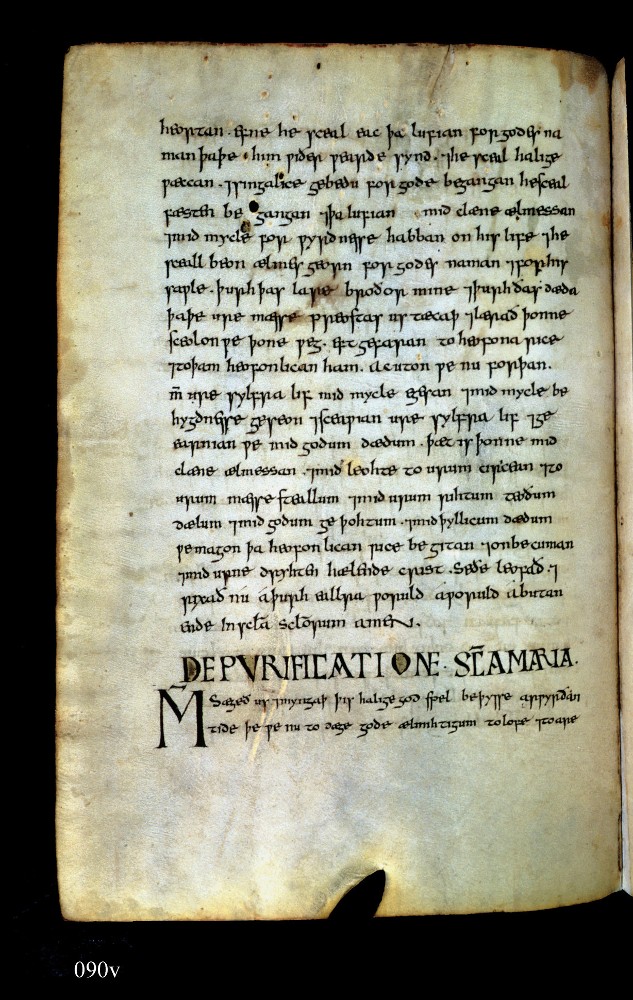 heortan · ærne he sceal eac þa lufian for godes na
man þaþe him ƿiðer ƿearde synd · ⁊he sceal halige
ƿæccan · ⁊singalice gebedu for gode begangan he sceal
fæsten be gangan ⁊þa lufian mid clæne ælmessan
⁊mid mycle for ƿyrdnesse habban on his life ⁊he
sceall beon ælmes georn for godes naman ⁊for his
saple · þurh þas lare broðor mine ⁊þurh ðas dæda
þaþe ure mæsse preostas us tæcaþ ⁊lærað þonne
sceolon ƿe þone ƿeg · eft gefaran to heofona rice
⁊to þam heofonlican ham · Ac uton ƿe nu forþan ·
m̄ ure sylfra lif mid mycle egesan ⁊mid mycle be
hygdnesse geseon ⁊sceapian ure sylfra lif ⁊ge
earnian ƿe mid godum dædum · þæt is þonne mid
clæne ælmessan · ⁊mid leohte to urum circean ⁊to
urum mæsse steallum ⁊mid urum rihtum teoðum
dælum ⁊mid godum ge þohtum · ⁊mid þyllicum dædum
ƿe magon þa heofon lican rice be gitan ⁊on becuman
⁊mid urne dryhten hælende crist · Seðe leofað · ⁊
rixað nu aþurh ealra ƿoruld aƿoruld abutan
ende In scl̄a scl̄orum amen ·
DE PVRIFICATIONE · SC̄A MARIA ·
M̄ Sægeð us ⁊myngaþ þis halige god spel be þysse arƿyrðan
tide þe ƿe nu to dæge gode ælmihtigum to lofe ⁊to are
090v